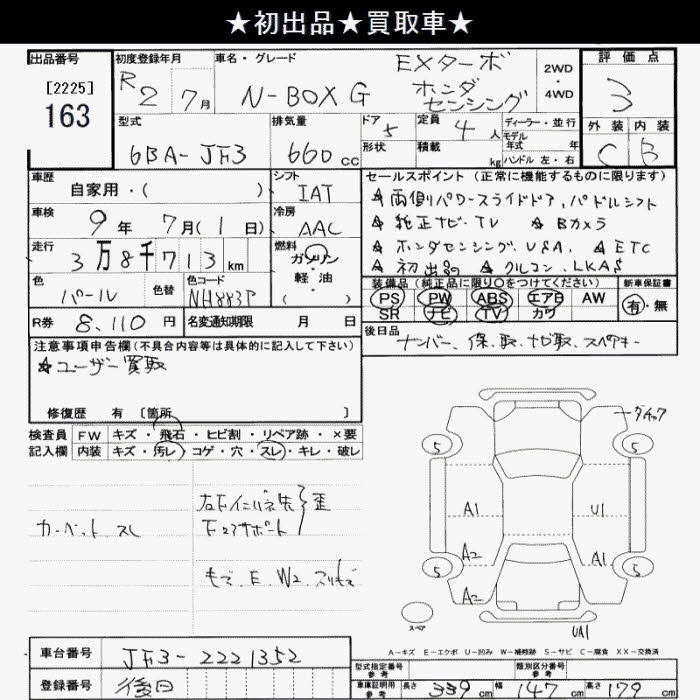 ★初出品★買取車★
出品番号
[2225]
163
初度登録年月
R2 7月
車名・グレード
N-BOX G
EXターボ
ホンダ
センシング
2WD
・
4WD
評価点
3
型式
6BA-JF3
排気量
660 cc
ドア
5
形状
定員
4人
積載
kg
ディーラー・並行
モデル
年式 年
ハンドル 左・右
外装 内装
C B
車歴
自家用・( )
シフト
IAT
車検
9年 7月(1日)
冷房
AAC
走行
3万8千713km
燃料
ガソリン
・
軽・油
( )
色
パール
色替
色コード
NH883P
R券 8,110円
名変通知期限 月 日
セールスポイント(正常に機能するものに限ります)
☆両側パワースライドドア、パドルシフト
☆純正ナビ・TV ☆Bカメラ
☆ホンダセンシング、VSA、☆ETC
☆初出品 ☆クルコン、LKAS
装備品(純正品に限り○をつけてください)
PS PW ABS エアB AW
SR ナビ TV カワ
新車保証書
有・無
後日品
ナンバー、保、取、ナビ取、スペアキー
注意事項申告欄(不具合内容等は具体的に記入して下さい)
☆ユーザー買取
修復歴 有 [箇所 ]
検査員
記入欄
FW キズ・飛石・ヒビ割・リペア跡・×要
内装 キズ・汚レ・コゲ・穴・スレ・キレ・破レ
カーペットスレ
右Fインパネ先
Fコアサポート
歪
5
5
5
5
A1
A2
A2
U1
A1
UA1
スペア
A-キズ E-エクボ U-凹み W-補修跡 S-サビ C-腐食 XX-交換済
車台番号 JF3-2221352
登録番号 後日
型式指定番号
参考
類別区分番号
参考
車庫証明用
参考
長さ 339cm 幅 147cm 高さ 179cm